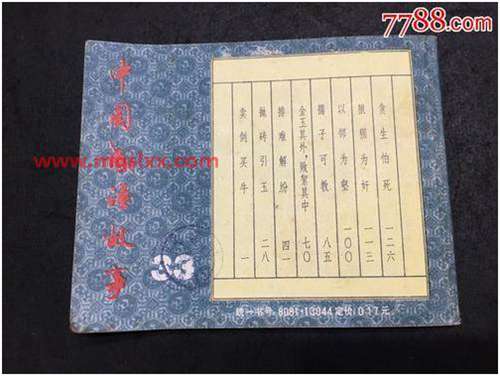 7788.com
中国成语故事
33
卖剑买牛 一
抛砖引玉 二八
排难解纷 四一
金玉其外，败絮其中 七〇
孺子可教 八五
以邻为壑 一〇〇
狼狈为奸 一一三
贪生怕死 一二六
统一书号：8081·13044 定价：0.17元